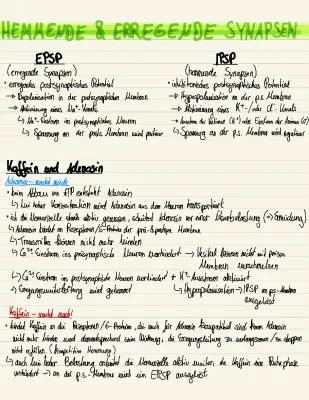 HEMMENDE & ERREGENDE SYNAPSEN
EPSP
(erregende Synapsen)
• erregendes postsynaptisches Potential
→ Depolarisation in der postsynaptischen Membran
→ Aktivierung eines Na⁺-Kanals
↳ Na⁺-Einstrom ins postsynaptische Neuron
↳ Spannung an der posts. Membran wird positiver
IPSP
(hemmende Synapsen)
• inhibitorisches postsynaptisches Potential
→ Hyperpolarisation an der p.s. Membran
→ Aktivierung eines K⁺-/oder Cl⁻-Kanals
↳ Ausstrom der Kationen (K⁺) oder Einstrom der Anionen (Cl⁻)
↳ Spannung an der ps. Membran wird negativer
Koffein und Adenosin
Adenosin - macht müde
• beim Abbau von ATP entsteht Adenosin
↳ bei hoher Konzentration wird Adenosin aus dem Neuron transportiert
• ist die Nervenzelle stark aktiv gewesen, schützt Adenosin vor einer Überbelastung (→ Ermüdung)
↳ Adenosin bindet an Rezeptoren/G-Protein der prä-synaptischen Membran
↳ Transmitter können nicht mehr binden
↳ Ca²⁺-Einstrom ins präsynaptische Neuron verhindert → Vesikel können nicht mit präsyn. Membran verschmelzen
↳ Ca²⁺-Einstrom ins postsynaptische Neuron verhindert + K⁺-Ausstrom aktiviert
↳ Erregungsweiterleitung wird gehemmt
↳ Hyperpolarisation → IPSP an ps-Membran ausgelöst
Koffein - macht wach!
• bindet Koffein an die Rezeptoren/G-Proteine, die auch für Adenosin
nicht mehr binden und dementsprechend seine Wirkung, die Erregungsleitung zu verlangsamen/zu stoppen
nicht erfüllen. (Kompetitive Hemmung)
↳ auch bei hoher Belastung arbeitet die Nervenzelle aktiv weiter, da Koffein eine Ruhephase
verhindert → an der p.s.-Membran wird ein EPSP ausgelöst